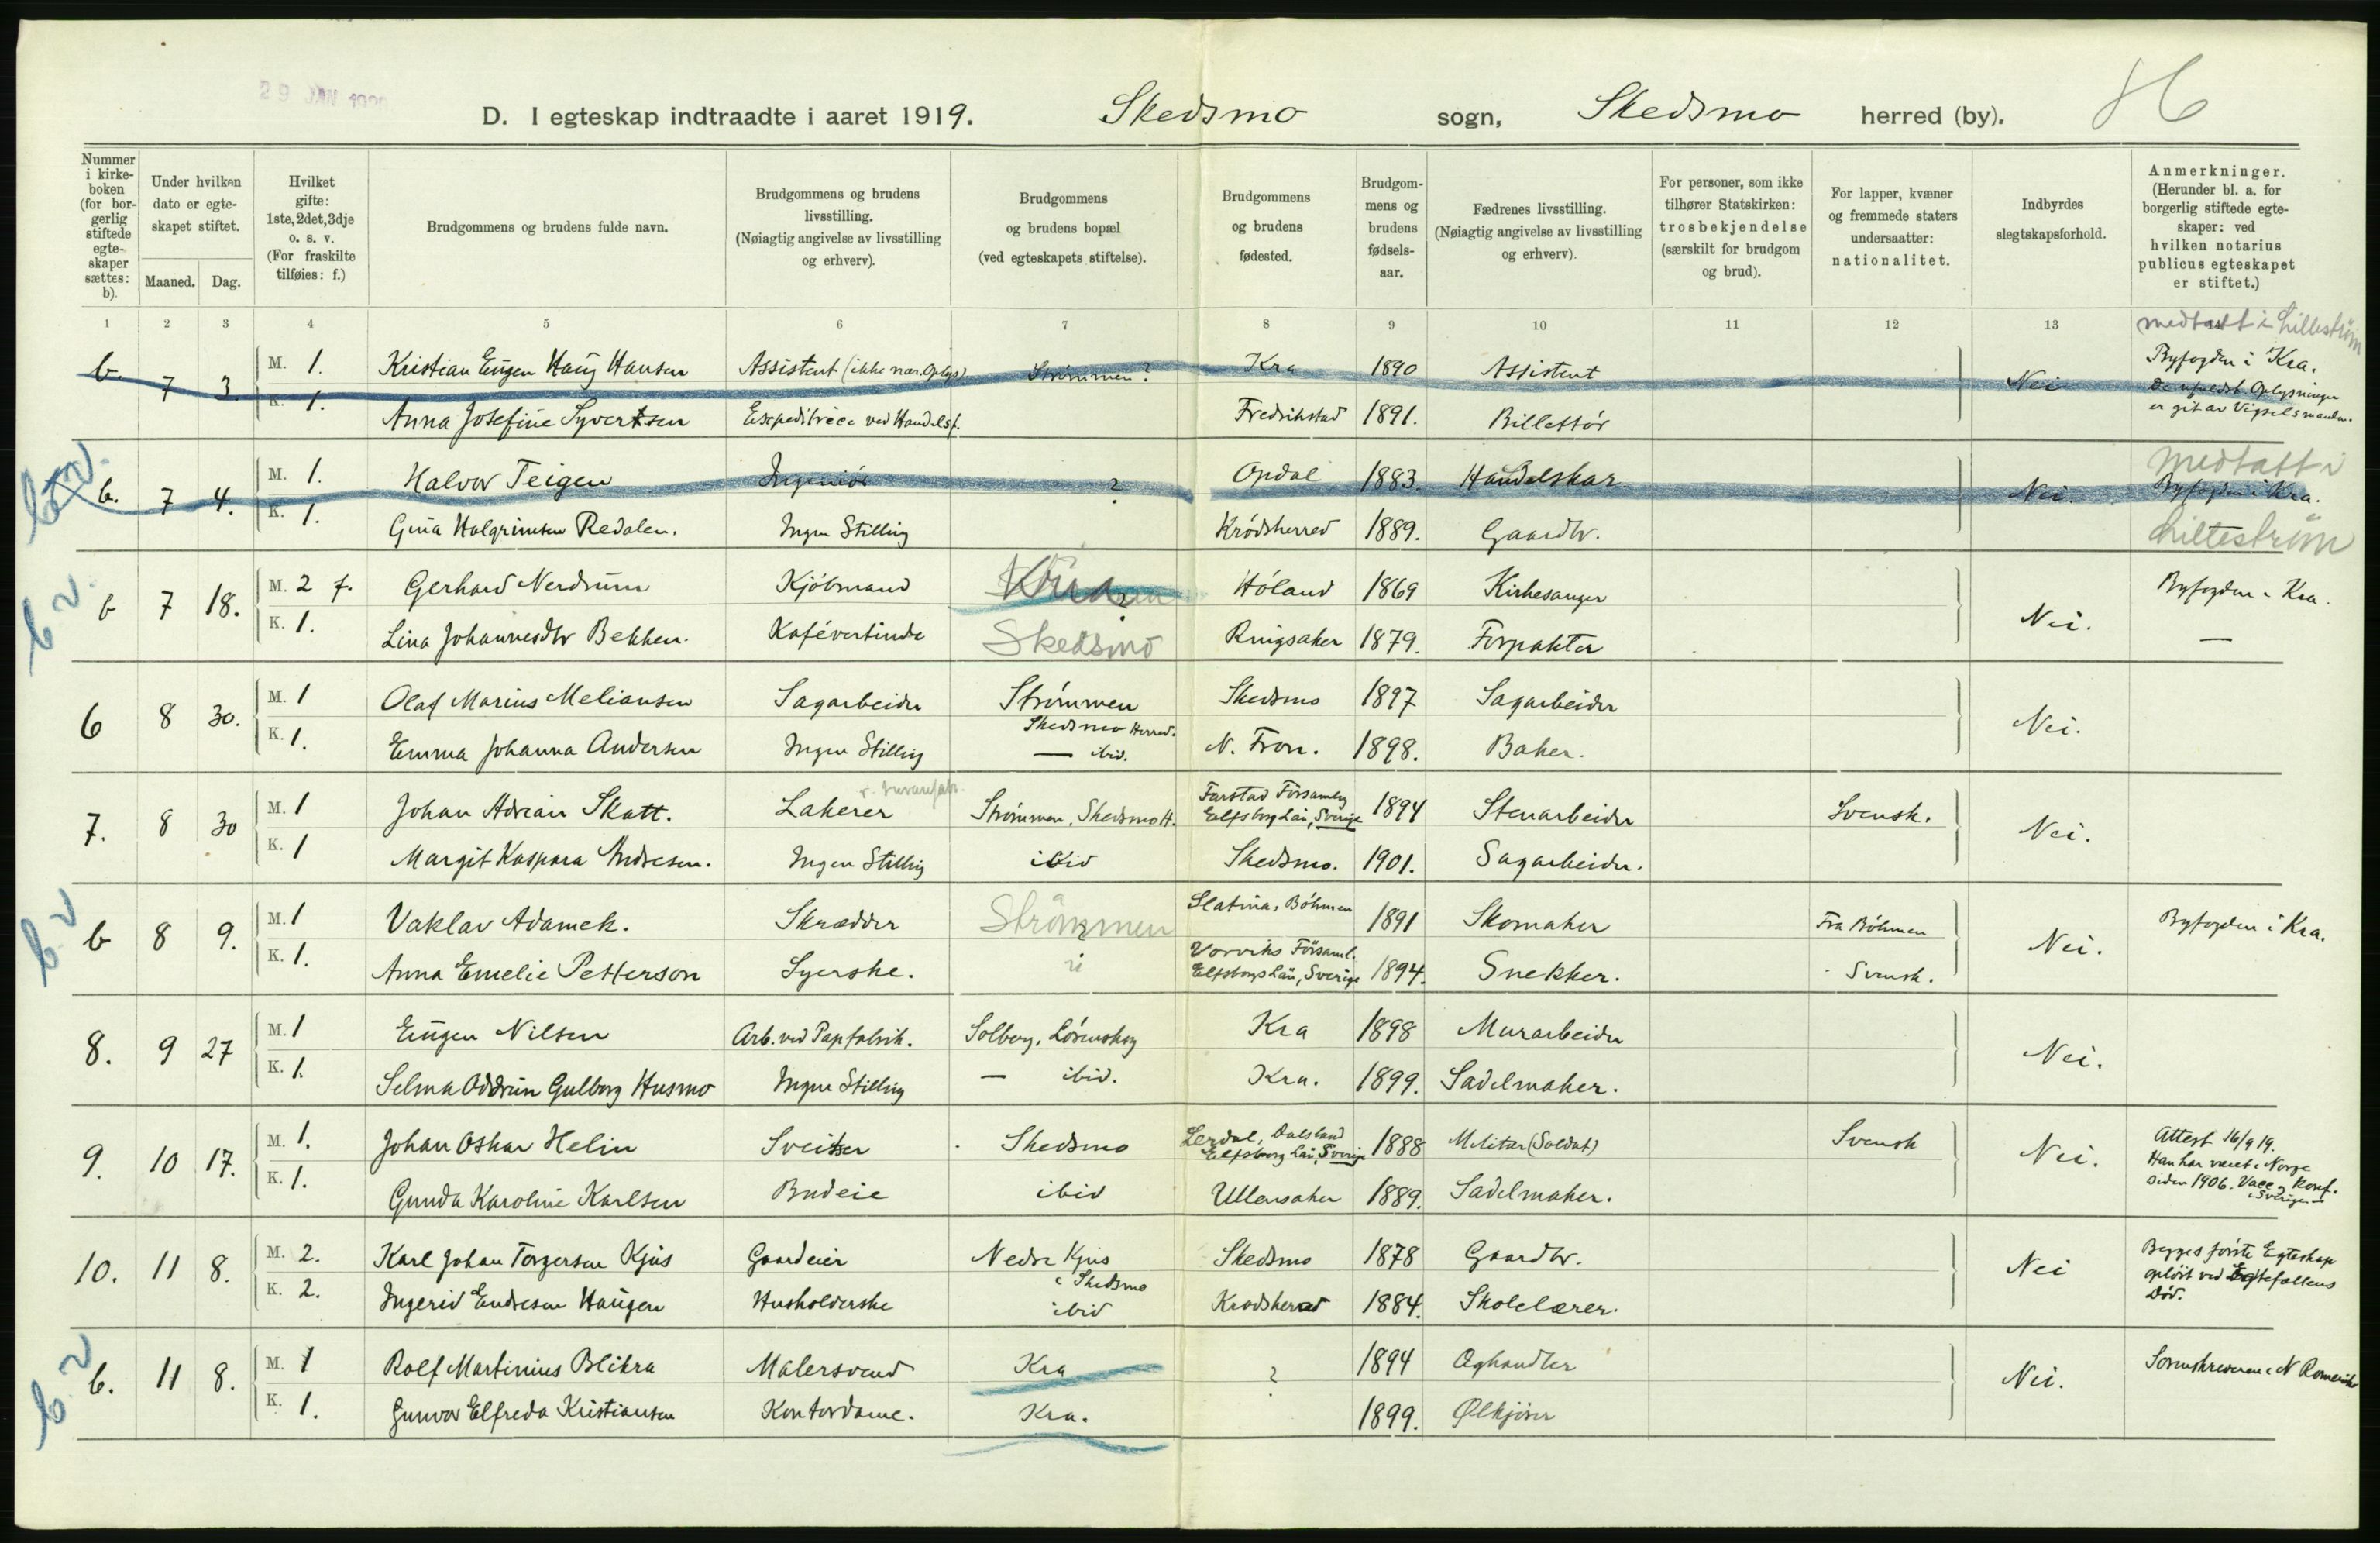 29 JAN 1920
D. I egteskap indtraadte i aaret 1919. Skedsmo sogn, Skedsmo herred (by).
Nummer i kirke-boken (for bor-gerlig stiftede egte-skaper sættes: b).
Under hvilken dato er egte-skapet stiftet.
Maaned. Dag.
Hvilket gifte: 1ste, 2det, 3dje o. s. v. (For fraskilte tilføies: f.)
Brudgommens og brudens fulde navn.
Brudgommens og brudens livsstilling. (Nøiagtig angivelse av livsstilling og erhverv).
Brudgommens og brudens bopæl (ved egteskapets stiftelse).
Brudgommens og brudens fødested.
Brudgom-mens og brudens fødsels-aar.
Fædrenes livsstilling. (Nøiagtig angivelse av livsstilling og erhverv).
For personer, som ikke tilhører Statskirken: trosbekjendelse (særskilt for brudgom og brud).
For lapper, kvæner og fremmede staters undersaatter: nationalitet.
Indbyrdes slegtskapsforhold.
Anmerkninger. (Herunder bl. a. for borgerlig stiftede egte-skaper: ved hvilken notarius publicus egteskapet er stiftet.)
1 2 3 4 5 6 7 8 9 10 11 12 13
medtatt i Lilleström
b. 7 3. M. 1. Kristian Eugen Haug Hansen Assistent (ikke nær. Oplys) Strömmen? Kra 1890 Assistent Nei Byfogden i Kra.
K. 1. Anna Josefine Syvertsen Expeditrice ved Handelsf. Fredrikstad 1891. Billettör De ufuldst. Oplysninger er git av Vigselsmanden.
b. 7 4. M. 1. Halvor Teigen Ingeniör ? Opdal 1883. Handelskar Nei. medtatt i Byfogden i Kra.
K. 1. Gina Halgrimsen Redalen. Ingen Stilling Krödsherred 1889. Gaardbr. Lilleström
b 7 18. M. 2 f. Gerhard Nerdrum Kjöbmand Kra Höland 1869 Kirkesanger Nei. Byfogden i Kra.
K. 1. Lina Johannesdtr Bekken. Kafévertinde Skedsmo Ringsaker 1879. Forpakter —
6 8 30. M. 1 Olaf Marius Meliansen Sagarbeider Strömmen Skedsmo Herred. Skedsmo 1897 Sagarbeider Nei.
K. 1. Emma Johanna Andersen Ingen Stilling — ibid. N. Fron. 1898. Baker.
7. 8 30 M. 1 Johan Adrian Skatt. Lakerer Strömmen, Skedsmo H. Farstad Församlg Elfsborg Län, Sverige 1894 Stenarbeider Svensk. Nei.
K. 1 Margit Kaspara Andresen. Ingen Stilling ibid Skedsmo. 1901. Sagarbeider.
b 8 9. M. 1 Vaklav Adamek. Skrædder Strömmen Slatina, Böhmen 1891 Skomaker Fra Böhmen Nei. Byfogden i Kra.
K. 1. Anna Emelie Petterson Syerske. Vorviks Församl. Elfsborgs Län, Sverige 1894. Snekker. Svensk.
8. 9 27 M. 1 Eugen Nilsen Arb. ved Papfabrik. Solberg, Lörenskog Kra 1898 Murarbeider Nei.
K. 1. Selma Oddrun Gulborg Husmo Ingen Stilling — ibid. Kra. 1899. Sadelmaker.
9. 10 17. M. 1. Johan Oskar Helin Sveitser Skedsmo Lerdal, Dalsland Elfsborg Län, Sverige 1888 Militær (Soldat) Svensk Nei. Attest 16/9 19. Han har været i Norge siden 1906. Vacc. Konf. i Sverige
K. 1. Gunda Karoline Karlsen Budeie ibid Ullensaker 1889. Sadelmaker.
10. 11 8. M. 2. Karl Johan Torgersen Kjus Gaardeier Nedre Kjus i Skedsmo Skedsmo 1878 Gaardbr. Nei Begges förste Egteskap oplöst ved Egtefællens Död.
K. 2. Ingerid Endresen Haugen Husholderske ibid Krødsherad 1884. Skolelærer.
b. 11 8. M. 1 Rolf Martinius Blikra Malersvend Kra ? 1894 Oghandler Nei. Sorenskriveren i N Romerike
K. 1. Gunvor Elfreda Kristiansen Kontordame. Kra. 1899. Ølkjörer